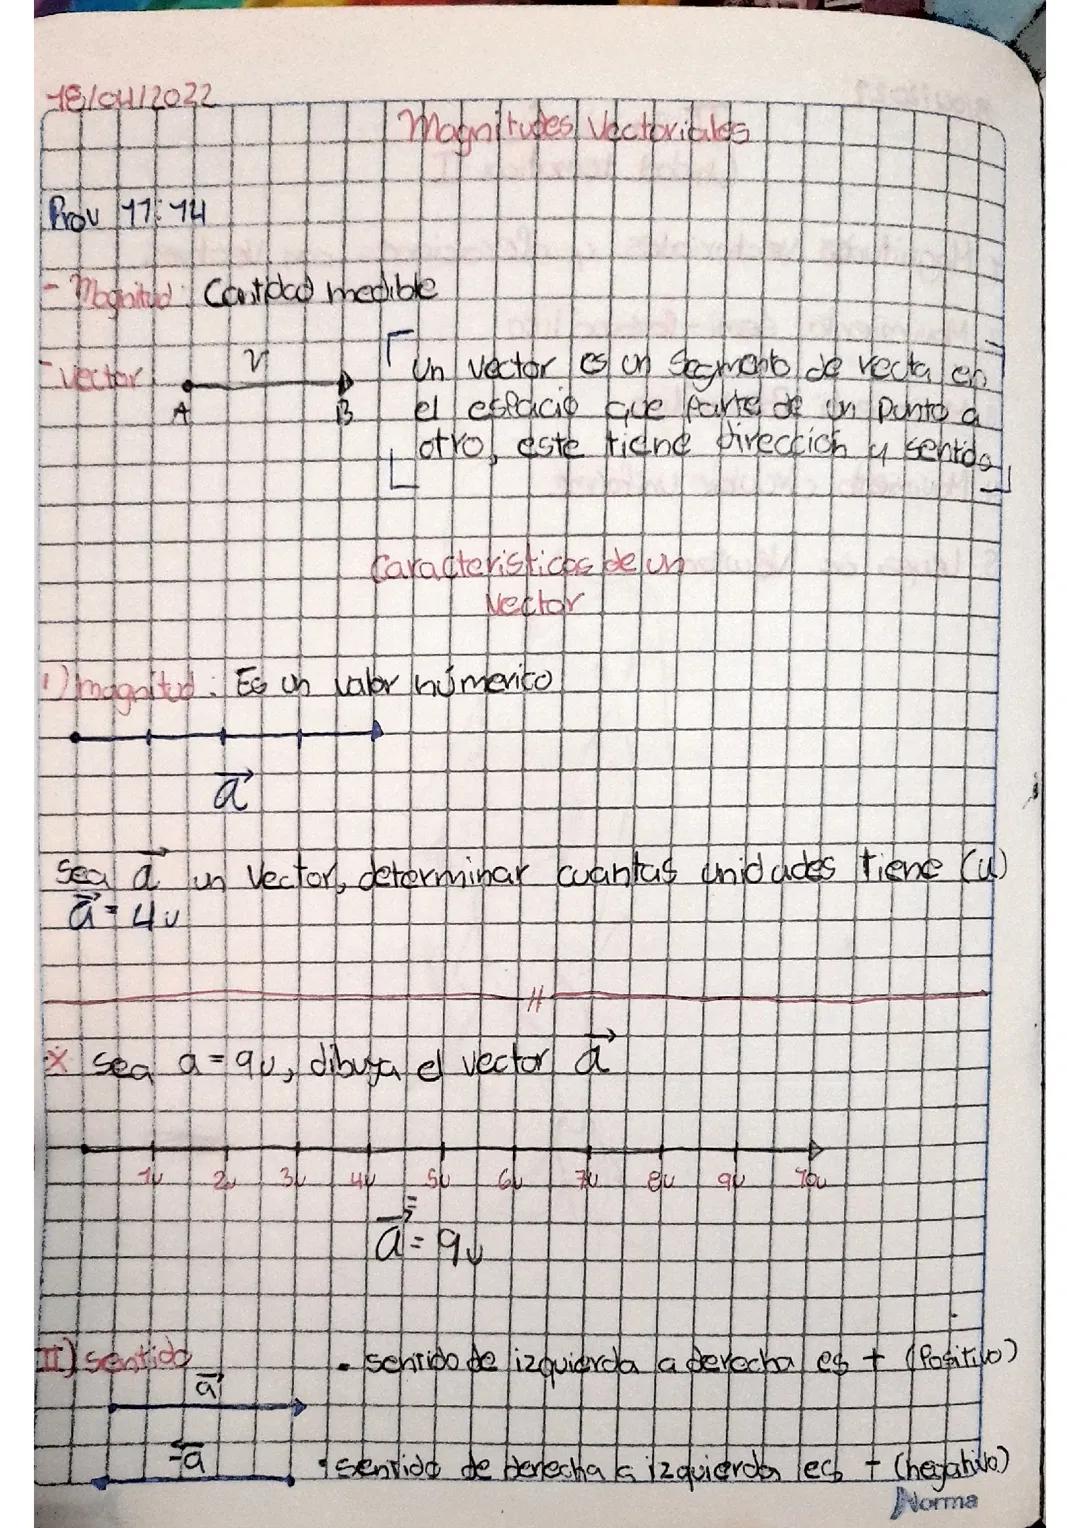 18/04/2022
Magnitudes Vectoriales
Prov 11:14
- Magnitud: Cantidad medible
- Vector:
v
A B
Un vector es un segmento de recta en
el espacio que parte de un punto a
otro, este tiene direccion y sentido
Caracteristicas de un
Vector
I) magnitud: Es un valor númerico
a
Sea a un vector, determinar cuantas unidades tiene (u)
a = 4u
* sea a = 9u, dibuja el vector a
1u 2u 3u 4u 5u 6u 7u 8u 9u 10u
a = 9u
II) sentido
• sentido de izquierda a derecha es + (Positivo)
a
-a
• sentido de derecha a izquierda es + (negativo)
Norma